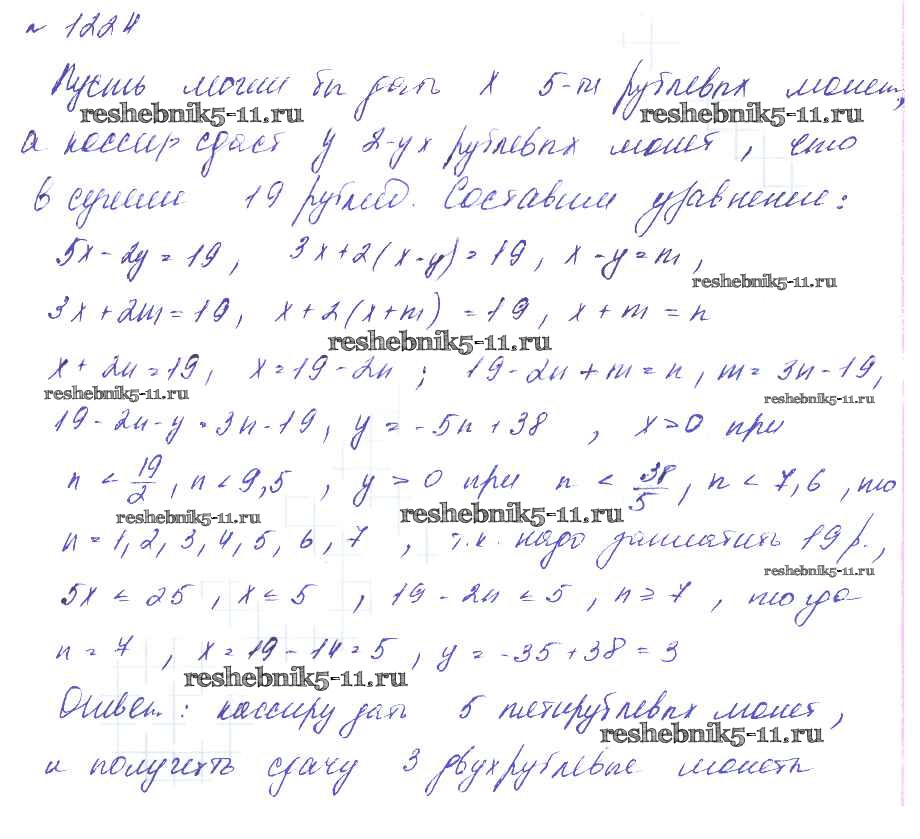 № 1224
Пусть могли бы дать x 5-ти рублевых монет,
reshebnik5-11.ru reshebnik5-11.ru
а кассир сдаст y 2-ух рублевых монет, что
в сумме 19 рублей. Составим уравнение:
5x - 2y = 19, 3x + 2(x - y) = 19, x - y = m,
reshebnik5-11.ru
3x + 2m = 19, x + 2(x + m) = 19, x + m = n
reshebnik5-11.ru
x + 2n = 19, x = 19 - 2n; 19 - 2n + m = n, m = 3n - 19,
reshebnik5-11.ru reshebnik5-11.ru
19 - 2n - y = 3n - 19, y = -5n + 38, x > 0 при
n < 19/2, n < 9,5, y > 0 при n < 38/5, n < 7,6, то
reshebnik5-11.ru reshebnik5-11.ru
n = 1, 2, 3, 4, 5, 6, 7, т.к. надо заплатить 19 р.,
reshebnik5-11.ru
5x ≤ 25, x ≤ 5, 19 - 2n ≤ 5, n ≥ 7, тогда
n = 7, x = 19 - 14 = 5, y = -35 + 38 = 3
reshebnik5-11.ru
Ответ: кассиру дать 5 пятирублевых монет,
reshebnik5-11.ru
и получить сдачу 3 двухрублевые монеты